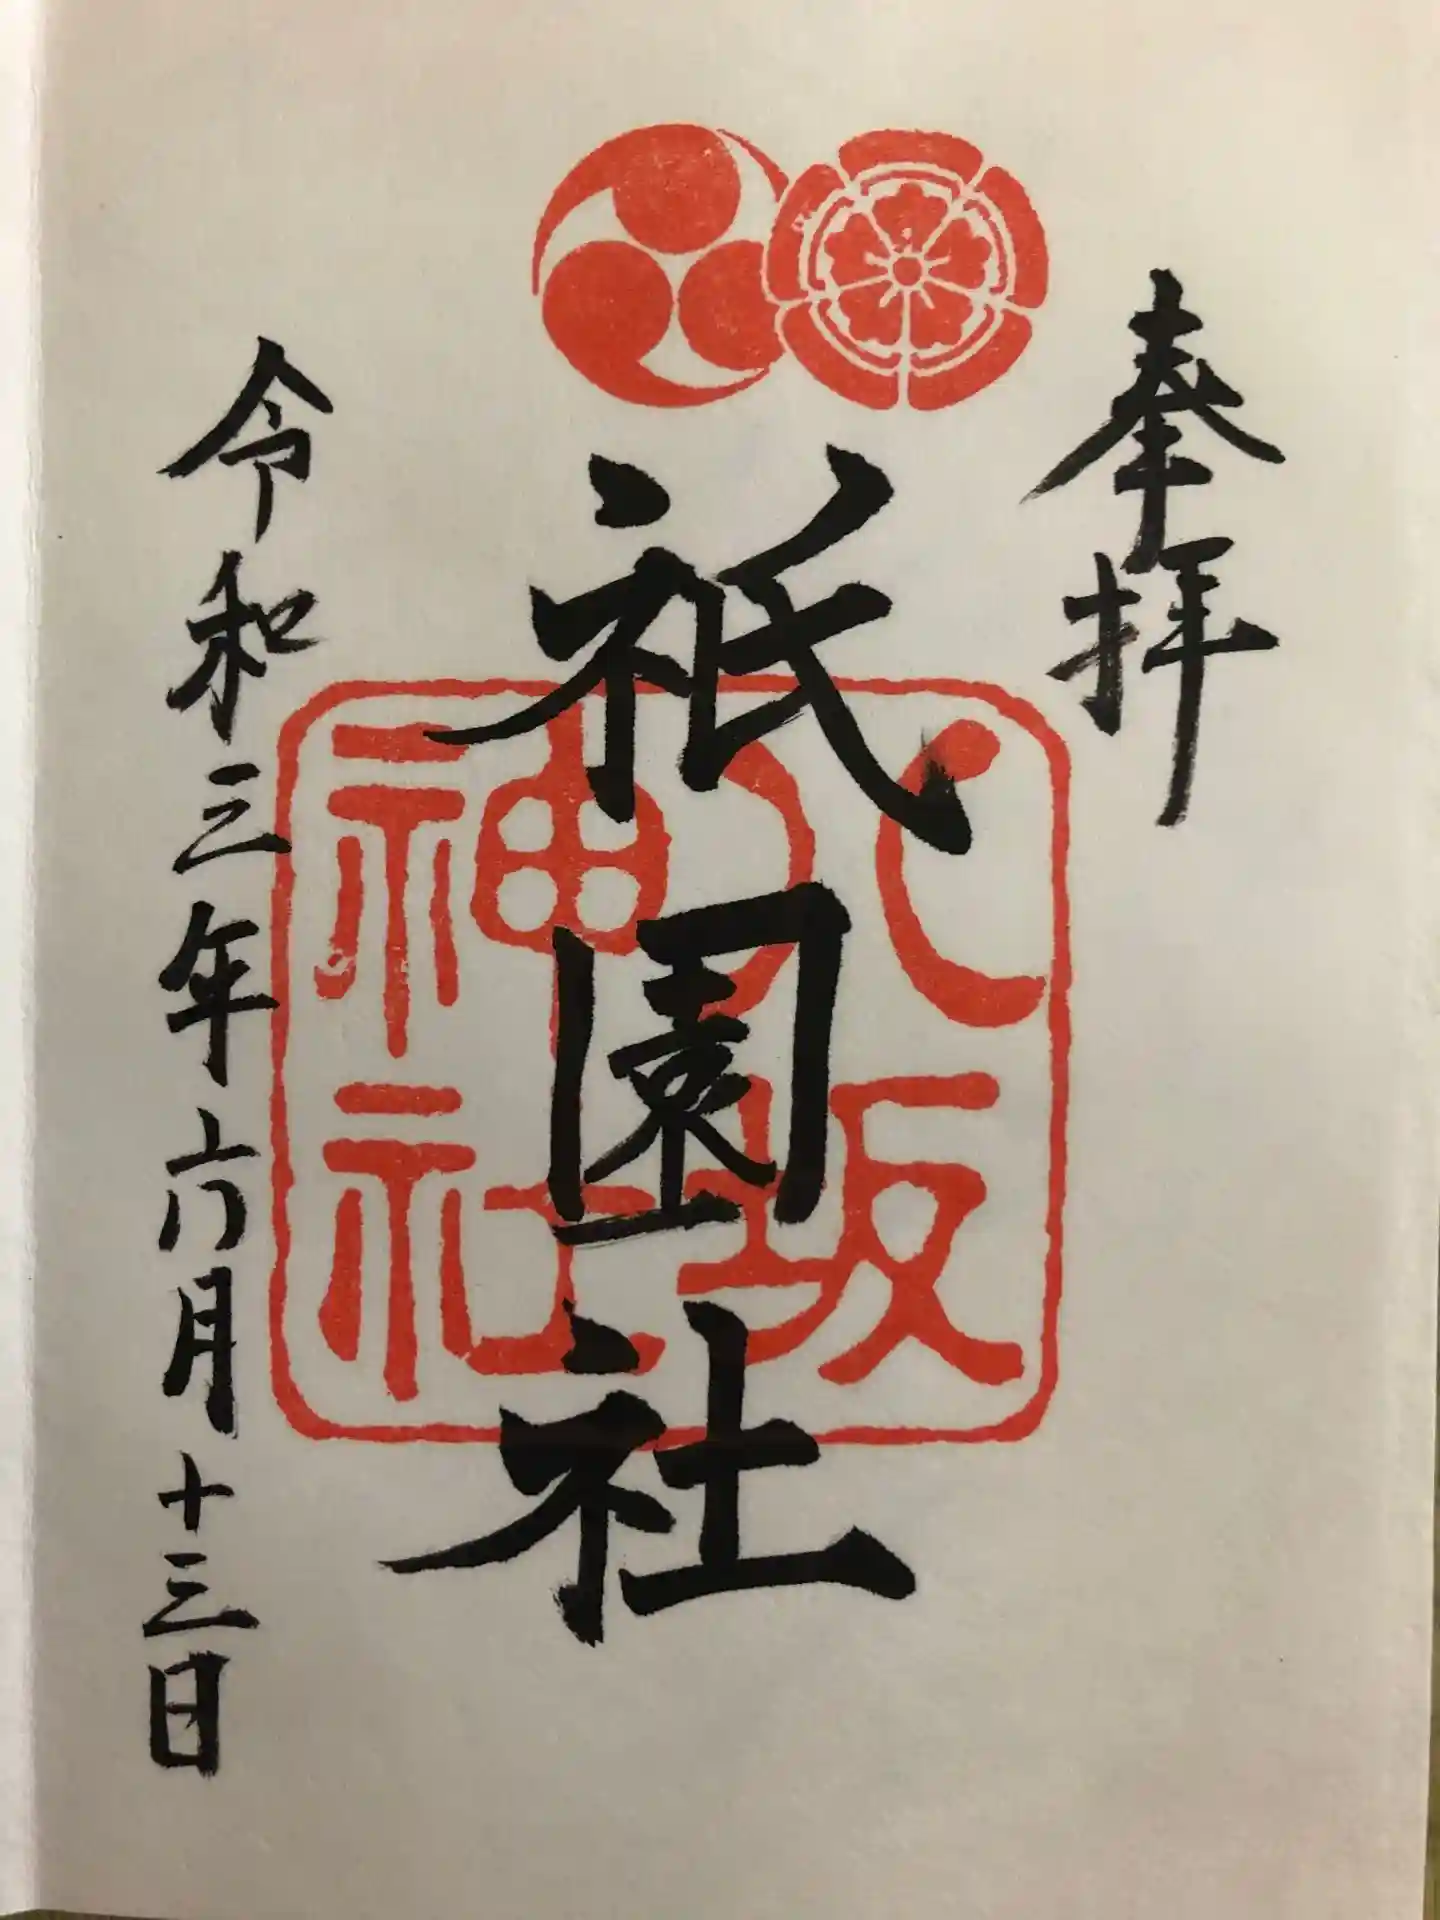 奉拝
祇園社
八坂
神社
令和三年六月十三日